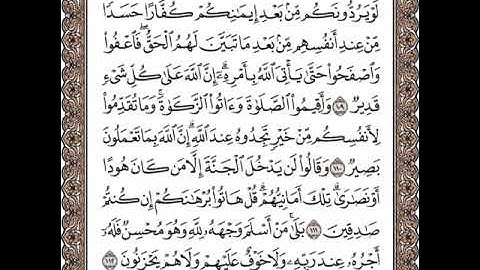 لَوْ يَرُدُّونَكُم مِّنۢ بَعْدِ إِيمَٰنِكُمْ كُفَّارًا حَسَدًا
مِّنْ عِندِ أَنفُسِهِم مِّنۢ بَعْدِ مَا تَبَيَّنَ لَهُمُ ٱلْحَقُّ ۖ فَٱعْفُوا۟
وَٱصْفَحُوا۟ حَتَّىٰ يَأْتِىَ ٱللَّهُ بِأَمْرِهِۦٓ ۗ إِنَّ ٱللَّهَ عَلَىٰ كُلِّ شَىْءٍ
قَدِيرٌ ١٠٩ وَأَقِيمُوا۟ ٱلصَّلَوٰةَ وَءَاتُوا۟ ٱلزَّكَوٰةَ ۚ وَمَا تُقَدِّمُوا۟
لِأَنفُسِكُم مِّنْ خَيْرٍ تَجِدُوهُ عِندَ ٱللَّهِ ۗ إِنَّ ٱللَّهَ بِمَا تَعْمَلُونَ
بَصِيرٌ ١١٠ وَقَالُوا۟ لَن يَدْخُلَ ٱلْجَنَّةَ إِلَّا مَن كَانَ هُودًا
أَوْ نَصَٰرَىٰ ۗ تِلْكَ أَمَانِيُّهُمْ ۗ قُلْ هَاتُوا۟ بُرْهَٰنَكُمْ إِن كُنتُمْ
صَٰدِقِينَ ١١١ بَلَىٰ مَنْ أَسْلَمَ وَجْهَهُۥ لِلَّهِ وَهُوَ مُحْسِنٌ فَلَهُۥٓ
أَجْرُهُۥ عِندَ رَبِّهِۦ وَلَا خَوْفٌ عَلَيْهِمْ وَلَا هُمْ يَحْزَنُونَ ١١٢